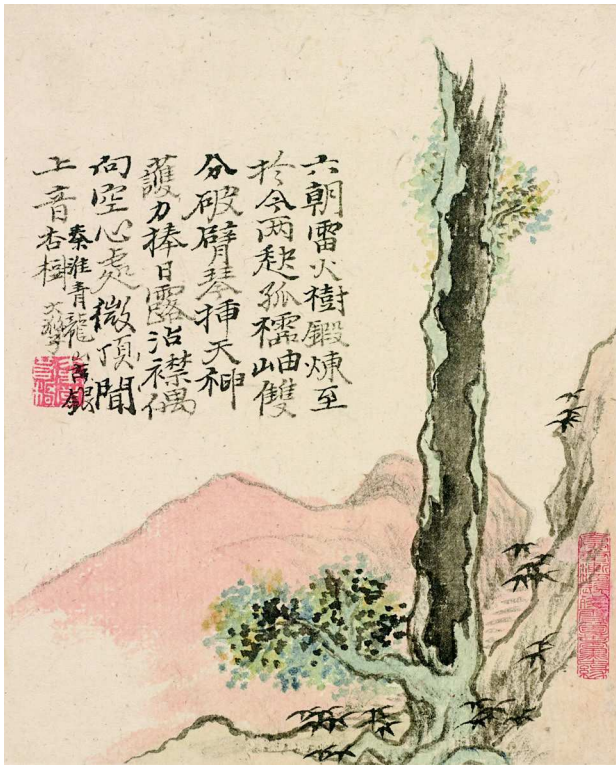 六朝雷火樹鍛煉至
扵今两孤岫雙
分破臂琴揷天神
護力捧日露沾襟偶
向空心處微頂聞
上音
秦淮青龍山古銀
杏樹 大滌子